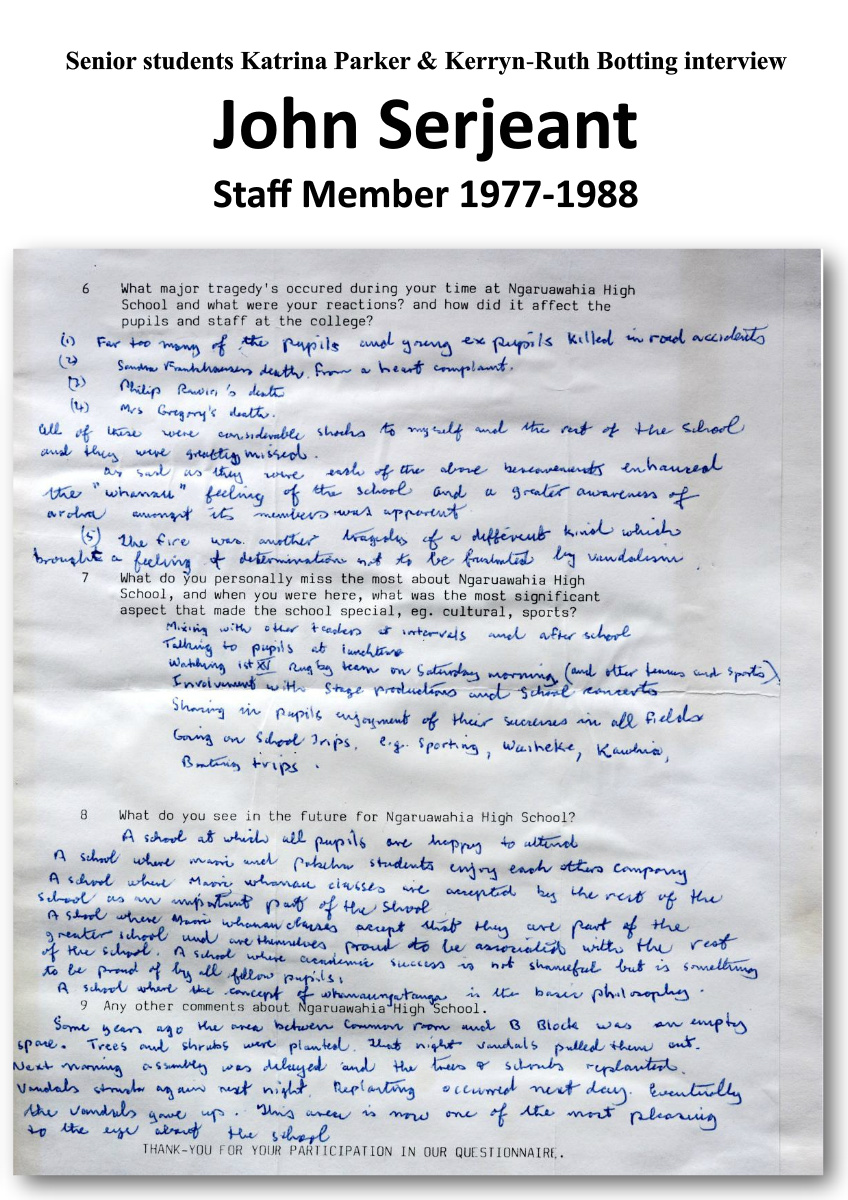 Senior students Katrina Parker & Kerryn-Ruth Botting interview
John Serjeant
Staff Member 1977-1988
6 What major tragedy's occured during your time at Ngaruawahia High
School and what were your reactions? and how did it affect the
pupils and staff at the college?
(1) Far too many of the pupils and young ex pupils killed in road accidents
(2) Sandra death from a heart complaint.
(3) Philip death
(4) Mrs Gregory's death.
All of these were considerable shocks to myself and the rest of the school
and they were greatly missed.
as sad as they were each of the above bereavements enhanced
the "whanau" feeling of the school and a greater awareness of
aroha amongst its members was apparent
(5) The fire was another tragedy of a different kind which
brought a feeling of determination not to be frustrated by vandalism.
7 What do you personally miss the most about Ngaruawahia High
School, and when you were here, what was the most significant
aspect that made the school special, eg. cultural, sports?
Mixing with other teachers at intervals and after school
Talking to pupils at lunchtime
Watching 1st XV rugby team on Saturday morning (and other teams and sports)
Involvement with stage productions and school concerts
Sharing in pupils enjoyment of their successes in all fields
Going on School Trips, e.g. Sporting, Waiheke, Kawhia,
Boating trips.
8 What do you see in the future for Ngaruawahia High School?
A school at which all pupils are happy to attend
A school where maori and Pakeha students enjoy each others company
A school where Maori whanau classes are accepted by the rest of the
school as an important part of the school
A school where Maori whanau classes accept that they are part of the
greater school and are themselves proud to be associated with the rest
of the school. A school where academic success is not shameful but is something
to be proud of by all fellow pupils.
A school where the concept of whawaungatanga is the basic philosophy.
9 Any other comments about Ngaruawahia High School.
Some years ago the area between Common room and B Block was an empty
space. Trees and shrubs were planted. That night vandals pulled them out.
Next morning assembly was delayed and the trees & schrubs replanted.
Vandals struck again next night. Replanting occurred next day. Eventually
the vandals gave up. This area is now one of the most pleasing
to the eye about the school
THANK-YOU FOR YOUR PARTICIPATION IN OUR QUESTIONNAIRE.